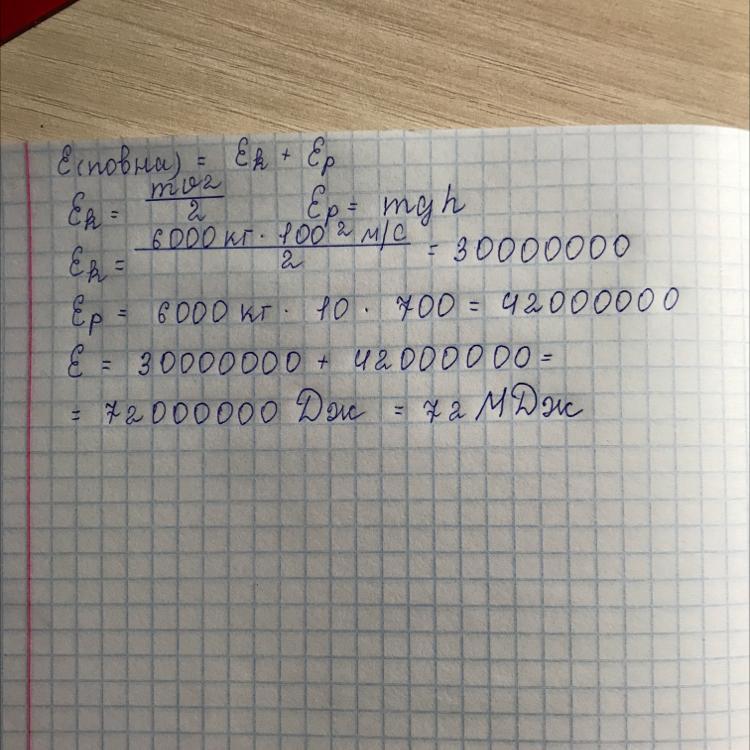 E(повна) = Ek + Ep
Ek = mv2/2 Ep = mgh
Ek = 6000 кг · 100² м/с / 2 = 30000000
Ep = 6000 кг · 10 · 700 = 42000000
E = 30000000 + 42000000 =
= 72000000 Дж = 72 МДж